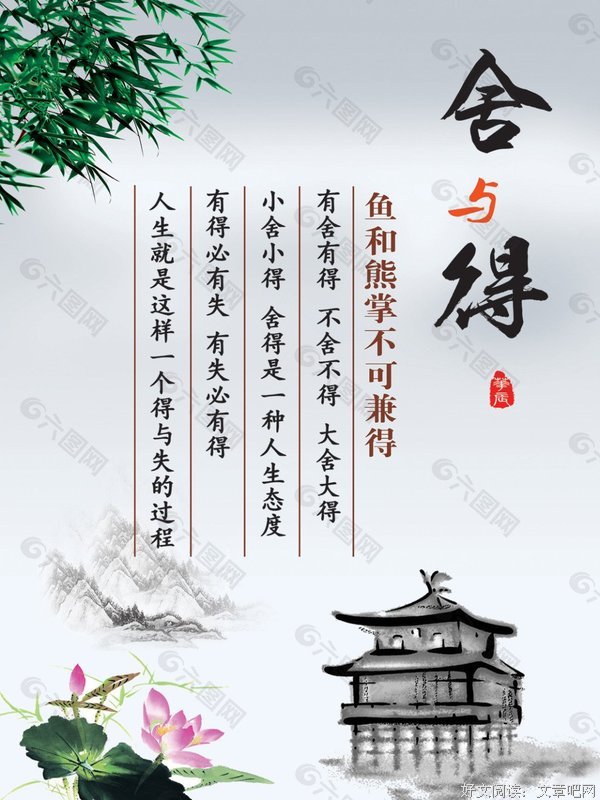 舍与得
鱼和熊掌不可兼得
有舍有得 不舍不得 大舍大得
小舍小得 舍得是一种人生态度
有得必有失 有失必有得
人生就是这样一个得与失的过程
六图网
好文阅读：文章吧网